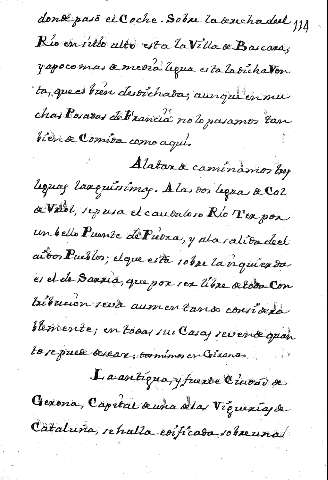 114
donde pasó el Coche. Sobre la derecha del
Río en sitio alto esta la Villa de Bascara,
y a poco mas de media legua esta la dicha Ven-
ta, que es bien desdichada; aunque en mu-
chas Posadas de Francia no lo pasamos tan
bien de Comida como aqui.
A la tarde caminamos tres
leguas larguissimas. A las dos legua de Col
de Uriol, se pasa el caudaloso Río Ter por
un bello Puente de Piedra, y a la salida del
ai dos Pueblos; el que está sobre la izquierda
es el de Sarriá, que por ser libre de toda Con
tribución se vá aumentando considera
blemente; en todas sus Casas se vende quan
to se puede desear; dormimos en Girona.
La antigua, y fuerte Ciudad de
Gerona, Capital de una de las Viguerias de
Cataluña, se halla edificada sobre una